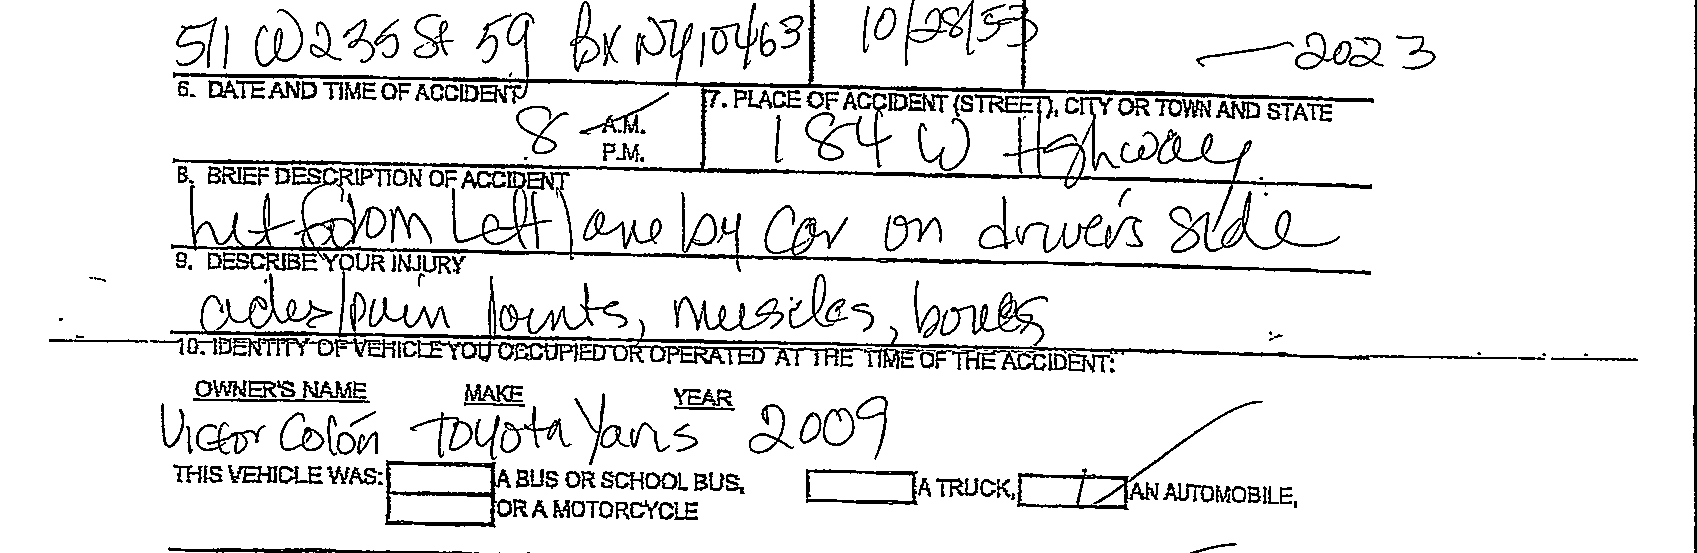 511 W 235 St 59 BX NY 10463 10/28/53 — 2023
6. DATE AND TIME OF ACCIDENT 7. PLACE OF ACCIDENT (STREET), CITY OR TOWN AND STATE
8 A.M. 184 W Highway
P.M.
8. BRIEF DESCRIPTION OF ACCIDENT
hit from left lane by car on driver's side
9. DESCRIBE YOUR INJURY
aches/pain joints, muscles, bones
10. IDENTITY OF VEHICLE YOU OCCUPIED OR OPERATED AT THE TIME OF THE ACCIDENT:
OWNER'S NAME MAKE YEAR
Victor Colón Toyota Yaris 2009
THIS VEHICLE WAS: A BUS OR SCHOOL BUS, A TRUCK, AN AUTOMOBILE,
OR A MOTORCYCLE